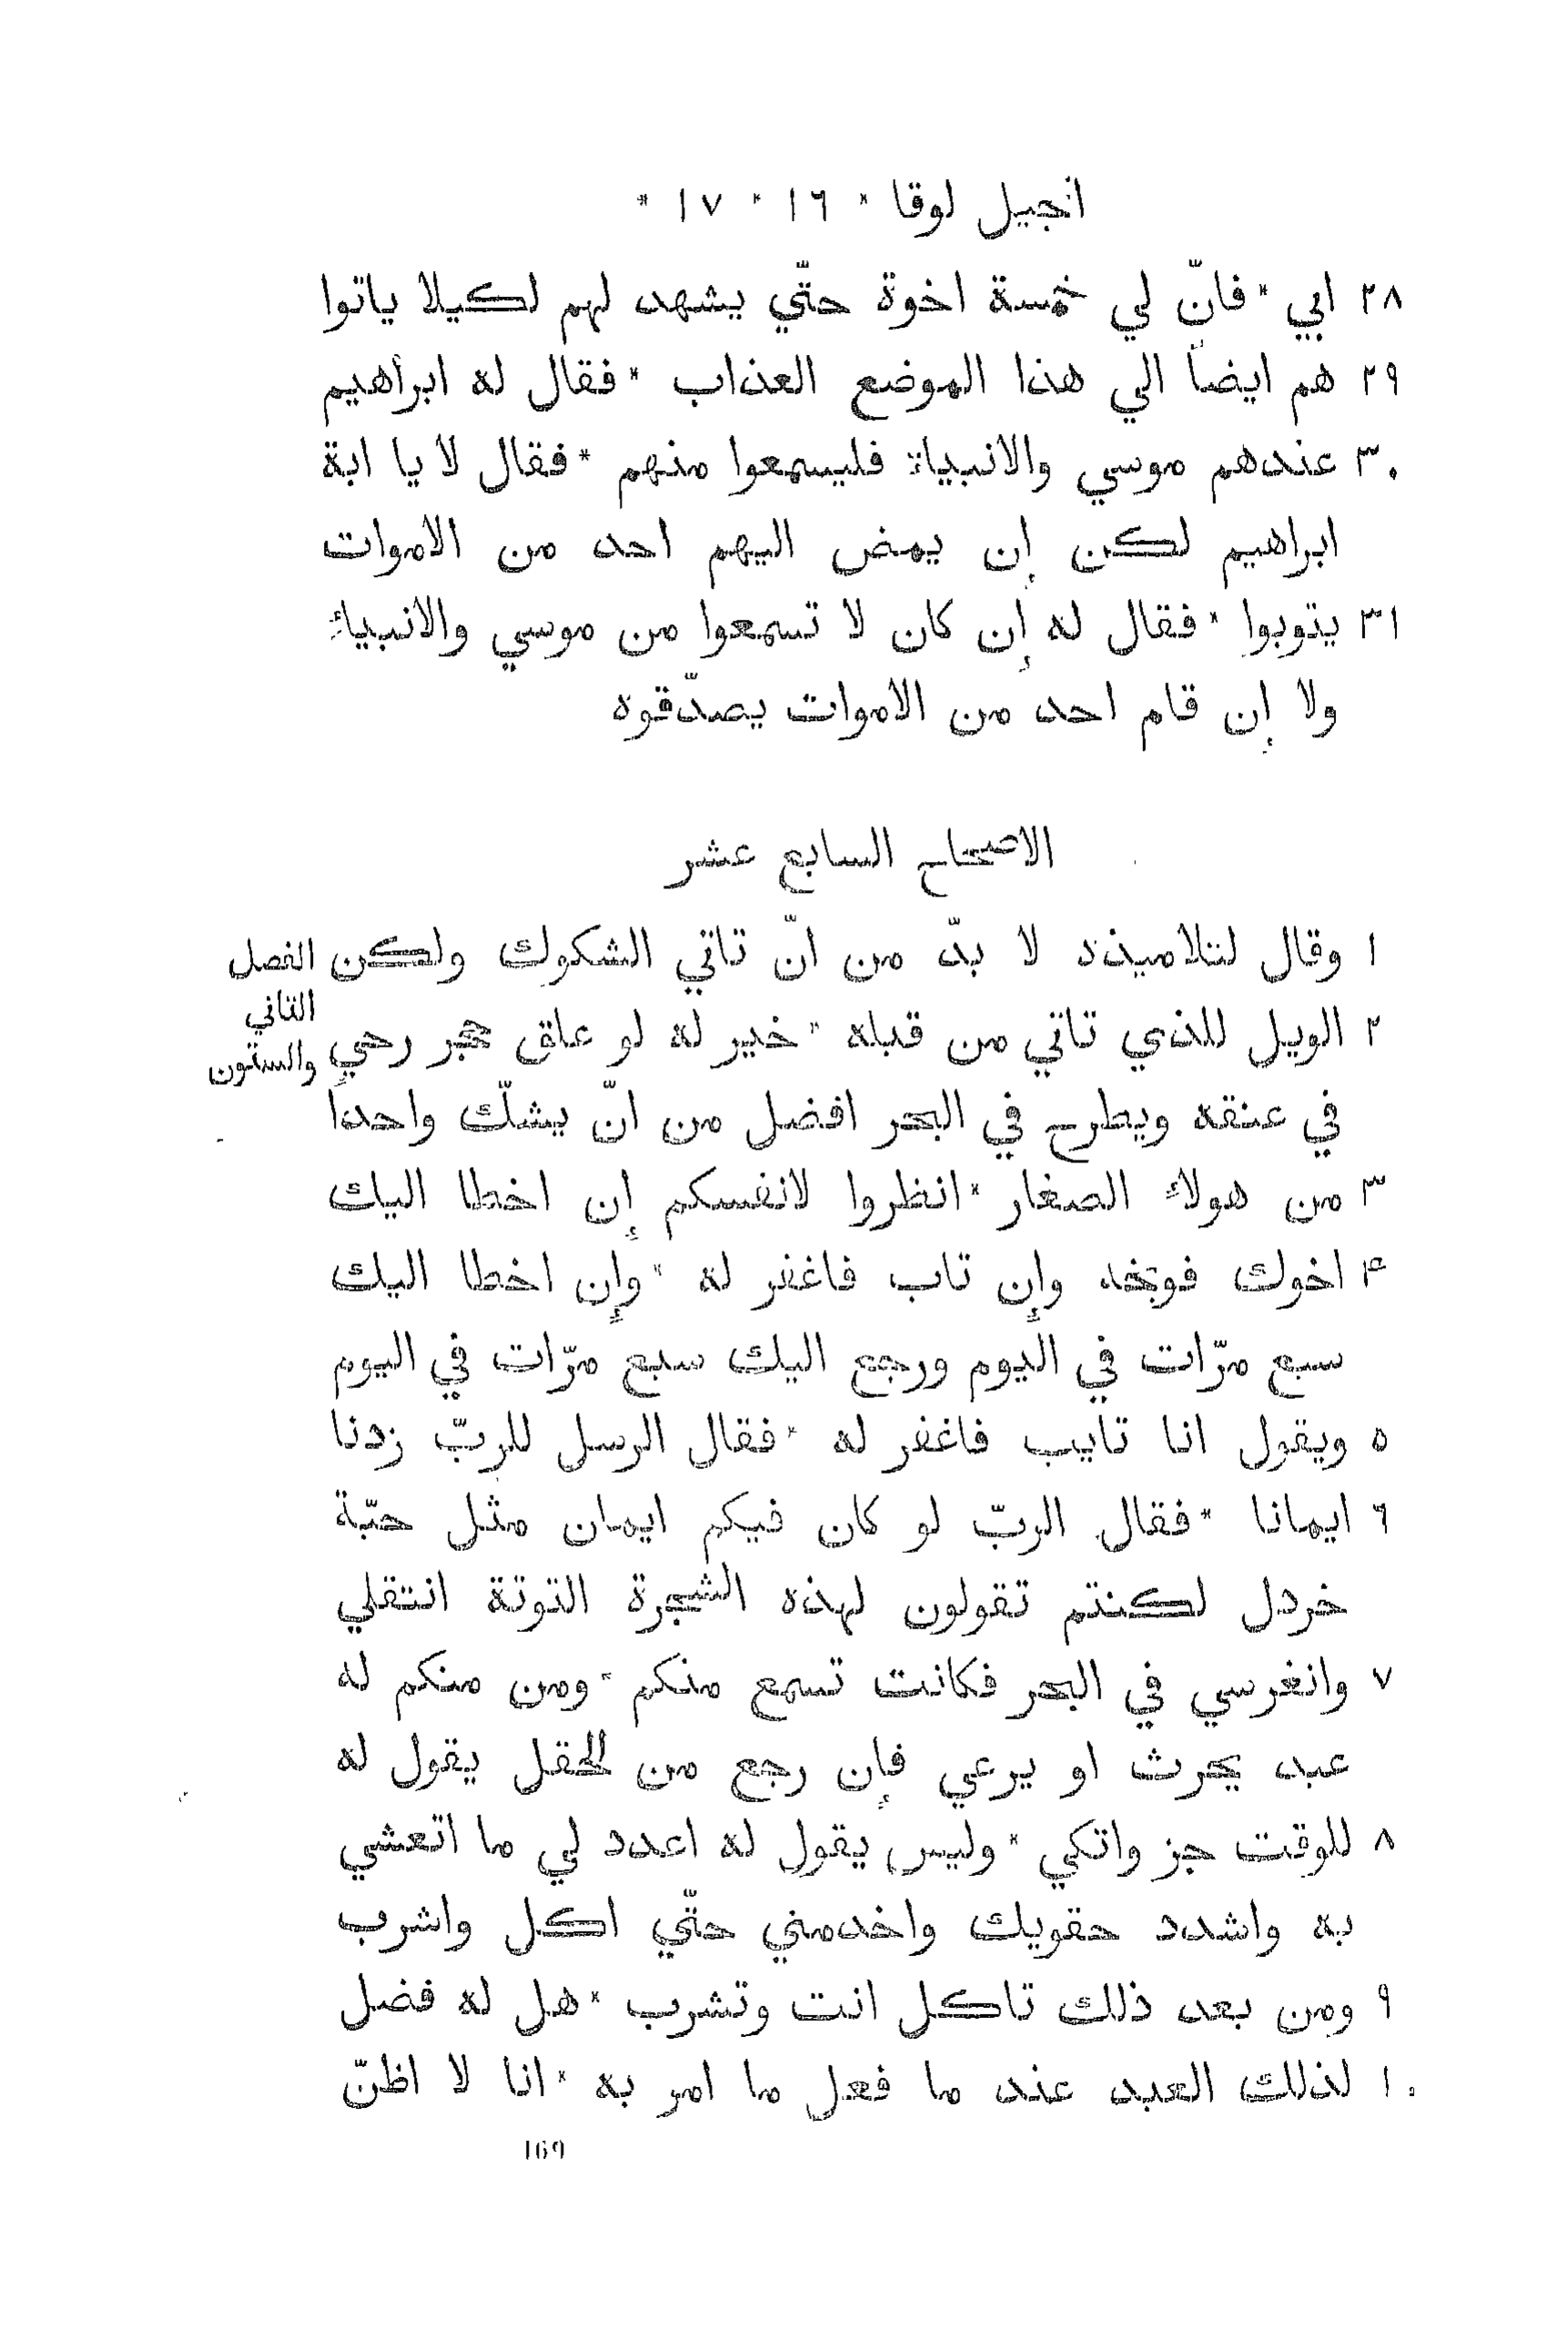 انجيل لوقا * ١٦ * ١٧ *
٢٨ ابي * فانّ لي خمسة اخوة حتّي يشهد لهم لكيلا ياتوا
٢٩ هم ايضاً الي هذا الموضع العذاب * فقال له ابراهيم
٣٠ عندهم موسي والانبياءُ فليسمعوا منهم * فقال لا يا ابة
ابراهيم لكن إن يمض اليهم احد من الاموات
٣١ يتوبوا * فقال له إن كان لا تسمعوا من موسي والانبياءِ
ولا إن قام احد من الاموات يصدّقوه
الاصحاح السابع عشر
١ وقال لتلاميذه لا بدّ من انّ تاتي الشكوك ولكن
الفصل
الثاني
والستون
٢ الويل للذي تاتي من قبله * خير له لو علق حجر رحي
في عنقه ويطرح في البحر افضل من انّ يشكّ واحداً
٣ من هولاءِ الصغار * انظروا لانفسكم إن اخطا اليك
۴ اخوك فوبخه وإن تاب فاغفر له * وإن اخطا اليك
سبع مرّات في اليوم ورجع اليك سبع مرّات في اليوم
٥ ويقول انا تايب فاغفر له * فقال الرسل للربّ زدنا
٦ ايمانا * فقال الربّ لو كان فيكم ايمان مثل حبّة
خردل لكنتم تقولون لهذه الشجرة التوتة انتقلي
٧ وانغرسي في البحر فكانت تسمع منكم * ومن منكم له
عبد يحرث او يرعي فإن رجع من الحقل يقول له
٨ للوقت جز واتكي * وليس يقول له اعدد لي ما اتعشي
به واشدد حقويك واخدمني حتّي اكل واشرب
٩ ومن بعد ذلك تاكل انت وتشرب * هل له فضل
١٠ لذلك العبد عند ما فعل ما امر به * انا لا اظنّ
169